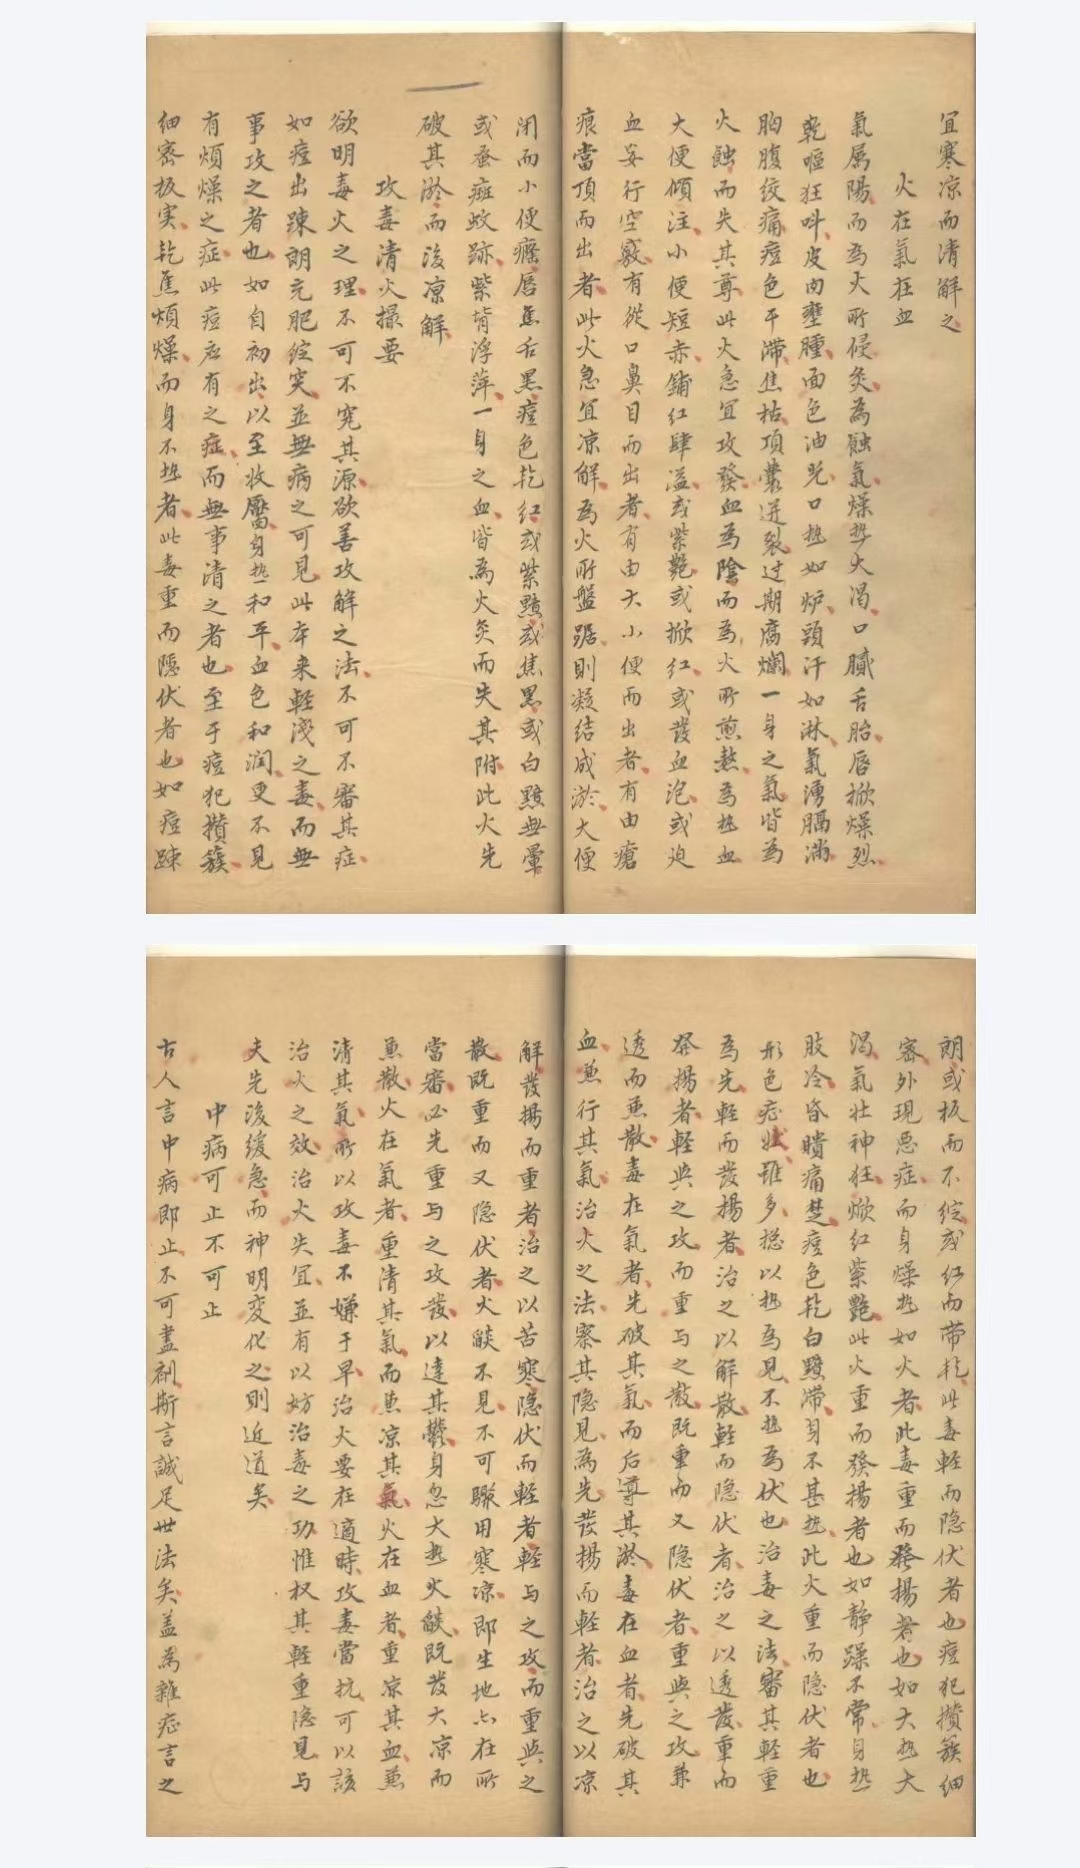 宜寒凉而清解之
火在氣在血
氣属陽而為火所侵灸為蝕氣燥热大渴口臟舌胎唇掀燥烈
乾嘔狂呌皮肉壅腫面色油光口热如炉頭汗如淋氣湧膈满
胸腹绞痛痘色干滯焦枯頂囊迸裂过期腐爛一身之氣皆為
火蝕而失其尊此火急宜攻發血為陰而為火所煎熬為热血
大便傾注小便短赤鋪红肆溢或紫艶或掀红或發血泡或迫
血妄行空竅有從口鼻目而出者有由大小便而出者有由瘡
痕當頂而出者此火急宜凉解為火所盤踞則凝结成淤大便
闭而小便癃唇焦舌黑痘色乾红或紫黯或焦黑或白黯無暈
或蚤癍蚊跡紫背浮萍一身之血皆為火灸而失其附此火先
破其淤而後凉解
攻毒清火撮要
欲明毒火之理不可不究其源欲善攻解之法不可不審其症
如痘出踈朗充肥绽突並無病之可見此本来輕淺之毒而無
事攻之者也如自初出以至收靨身热和平血色和润更不見
有煩燥之症此痘应有之症而無事清之者也至于痘犯攅簇
细密板实乾焦煩燥而身不热者此毒重而隱伏者也如痘踈
朗或板而不绽或红而带乾此毒軽而隐伏者也痘犯攅簇细
密外現恶症而身燥热如火者此毒重而發揚者也如大热大
渴氣壮神狂焮红紫艶此火重而發揚者也如静躁不常身热
肢冷昏瞶痛楚痘色乾白黯滯身不甚热此火重而隐伏者也
形色症状雖多揔以热為見不热為伏也治毒之法審其軽重
為先軽而發揚者治之以解散軽而隐伏者治之以透發重而
發揚者軽與之攻而重与之散既重而又隐伏者重與之攻兼
透而兼散毒在氣者先破其氣而后導其淤毒在血者先破其
血兼行其氣治火之法察其隐見為先發揚而軽者治之以凉
解發揚而重者治之以苦寒隐伏而軽者軽与之攻而重與之
散既重而又隐伏者火燄不見不可驟用寒凉即生地亦在所
當審必先重与之攻發以達其鬱身忽大热火燄既發大凉而
兼散火在氣者重清其氣而兼凉其氣火在血者重凉其血兼
清其氣所以攻毒不嫌于早治火要在適時攻毒當抗可以該
治火之效治火失宜並有以妨治毒之功惟权其軽重隐見与
夫先後缓急而神明变化之則近道矣
中病可止不可止
古人言中病即止不可盡劑斯言誠足世法矣盖為雜症言之